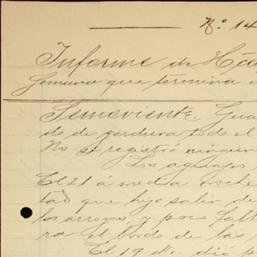 Nº 14
Informe de
Semana que termina
Semoviente. Gua
do de gordura todo el
No se registró ningun
Los aguajes
El 21 á media noche
tad que hizo salir de
los arroyos, y poco falt
ra el bordo de las
El 19 dio p